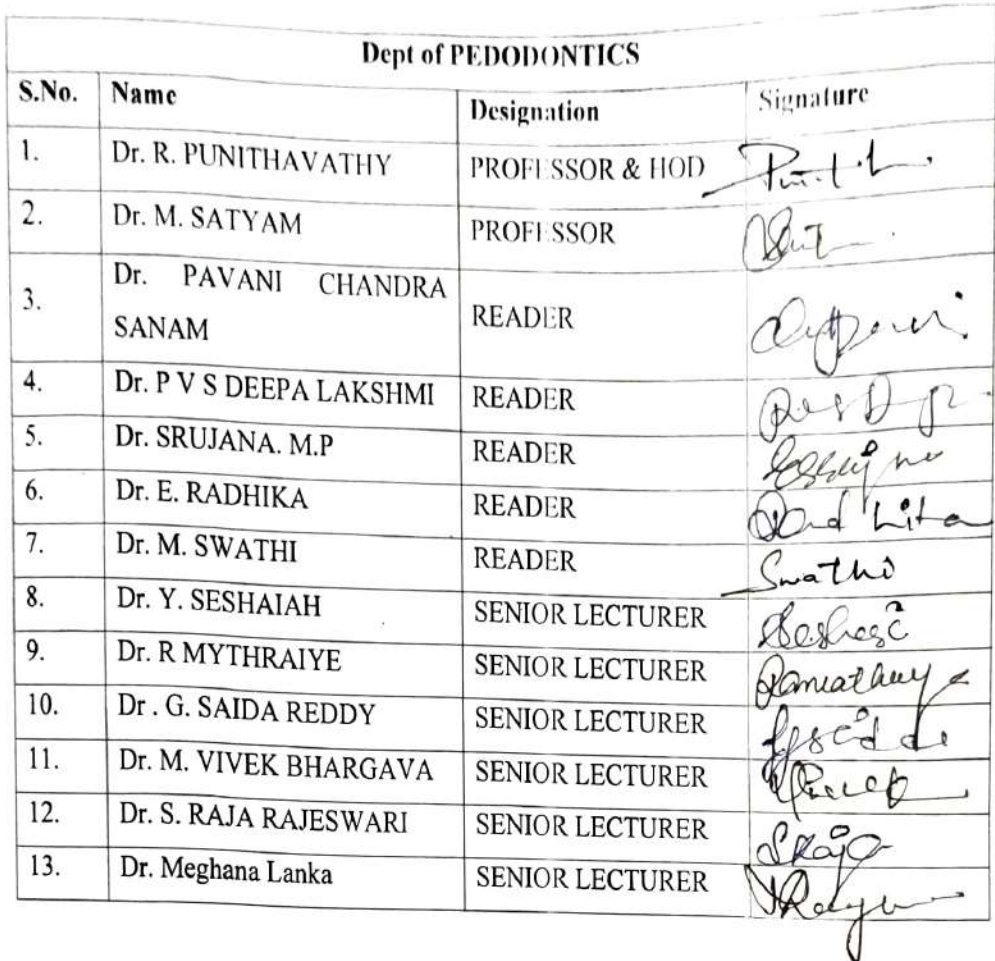 Dept of PEDODONTICS
S.No. Name Designation Signature
1. Dr. R. PUNITHAVATHY PROFESSOR & HOD
2. Dr. M. SATYAM PROFESSOR
3. Dr. PAVANI CHANDRA
SANAM READER
4. Dr. P V S DEEPA LAKSHMI READER
5. Dr. SRUJANA. M.P READER
6. Dr. E. RADHIKA READER
7. Dr. M. SWATHI READER Swathi
8. Dr. Y. SESHAIAH SENIOR LECTURER
9. Dr. R MYTHRAIYE SENIOR LECTURER
10. Dr . G. SAIDA REDDY SENIOR LECTURER
11. Dr. M. VIVEK BHARGAVA SENIOR LECTURER
12. Dr. S. RAJA RAJESWARI SENIOR LECTURER
13. Dr. Meghana Lanka SENIOR LECTURER